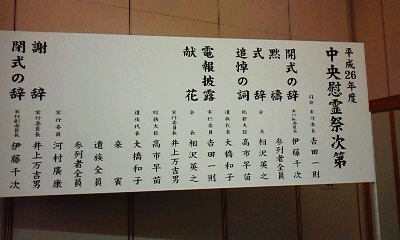 平成26年度
中央慰霊祭次第
司会 実行委員 吉田一則
開式の辞 実行副委員長 伊藤千次
黙禱 参列者全員
式辞 会長 相沢英之
追悼の詞 総務大臣 高市早苗
遺族代表 大橋和子
電報披露 実行委員 吉田一則
献花 会長 相沢英之
実行委員長 井上万吉男
総務大臣 高市早苗
遺族代表 大橋和子
来賓
遺族全員
参列者全員
実行委員 河村廣康
謝辞 実行委員長 井上万吉男
閉式の辞 実行副委員長 伊藤千次